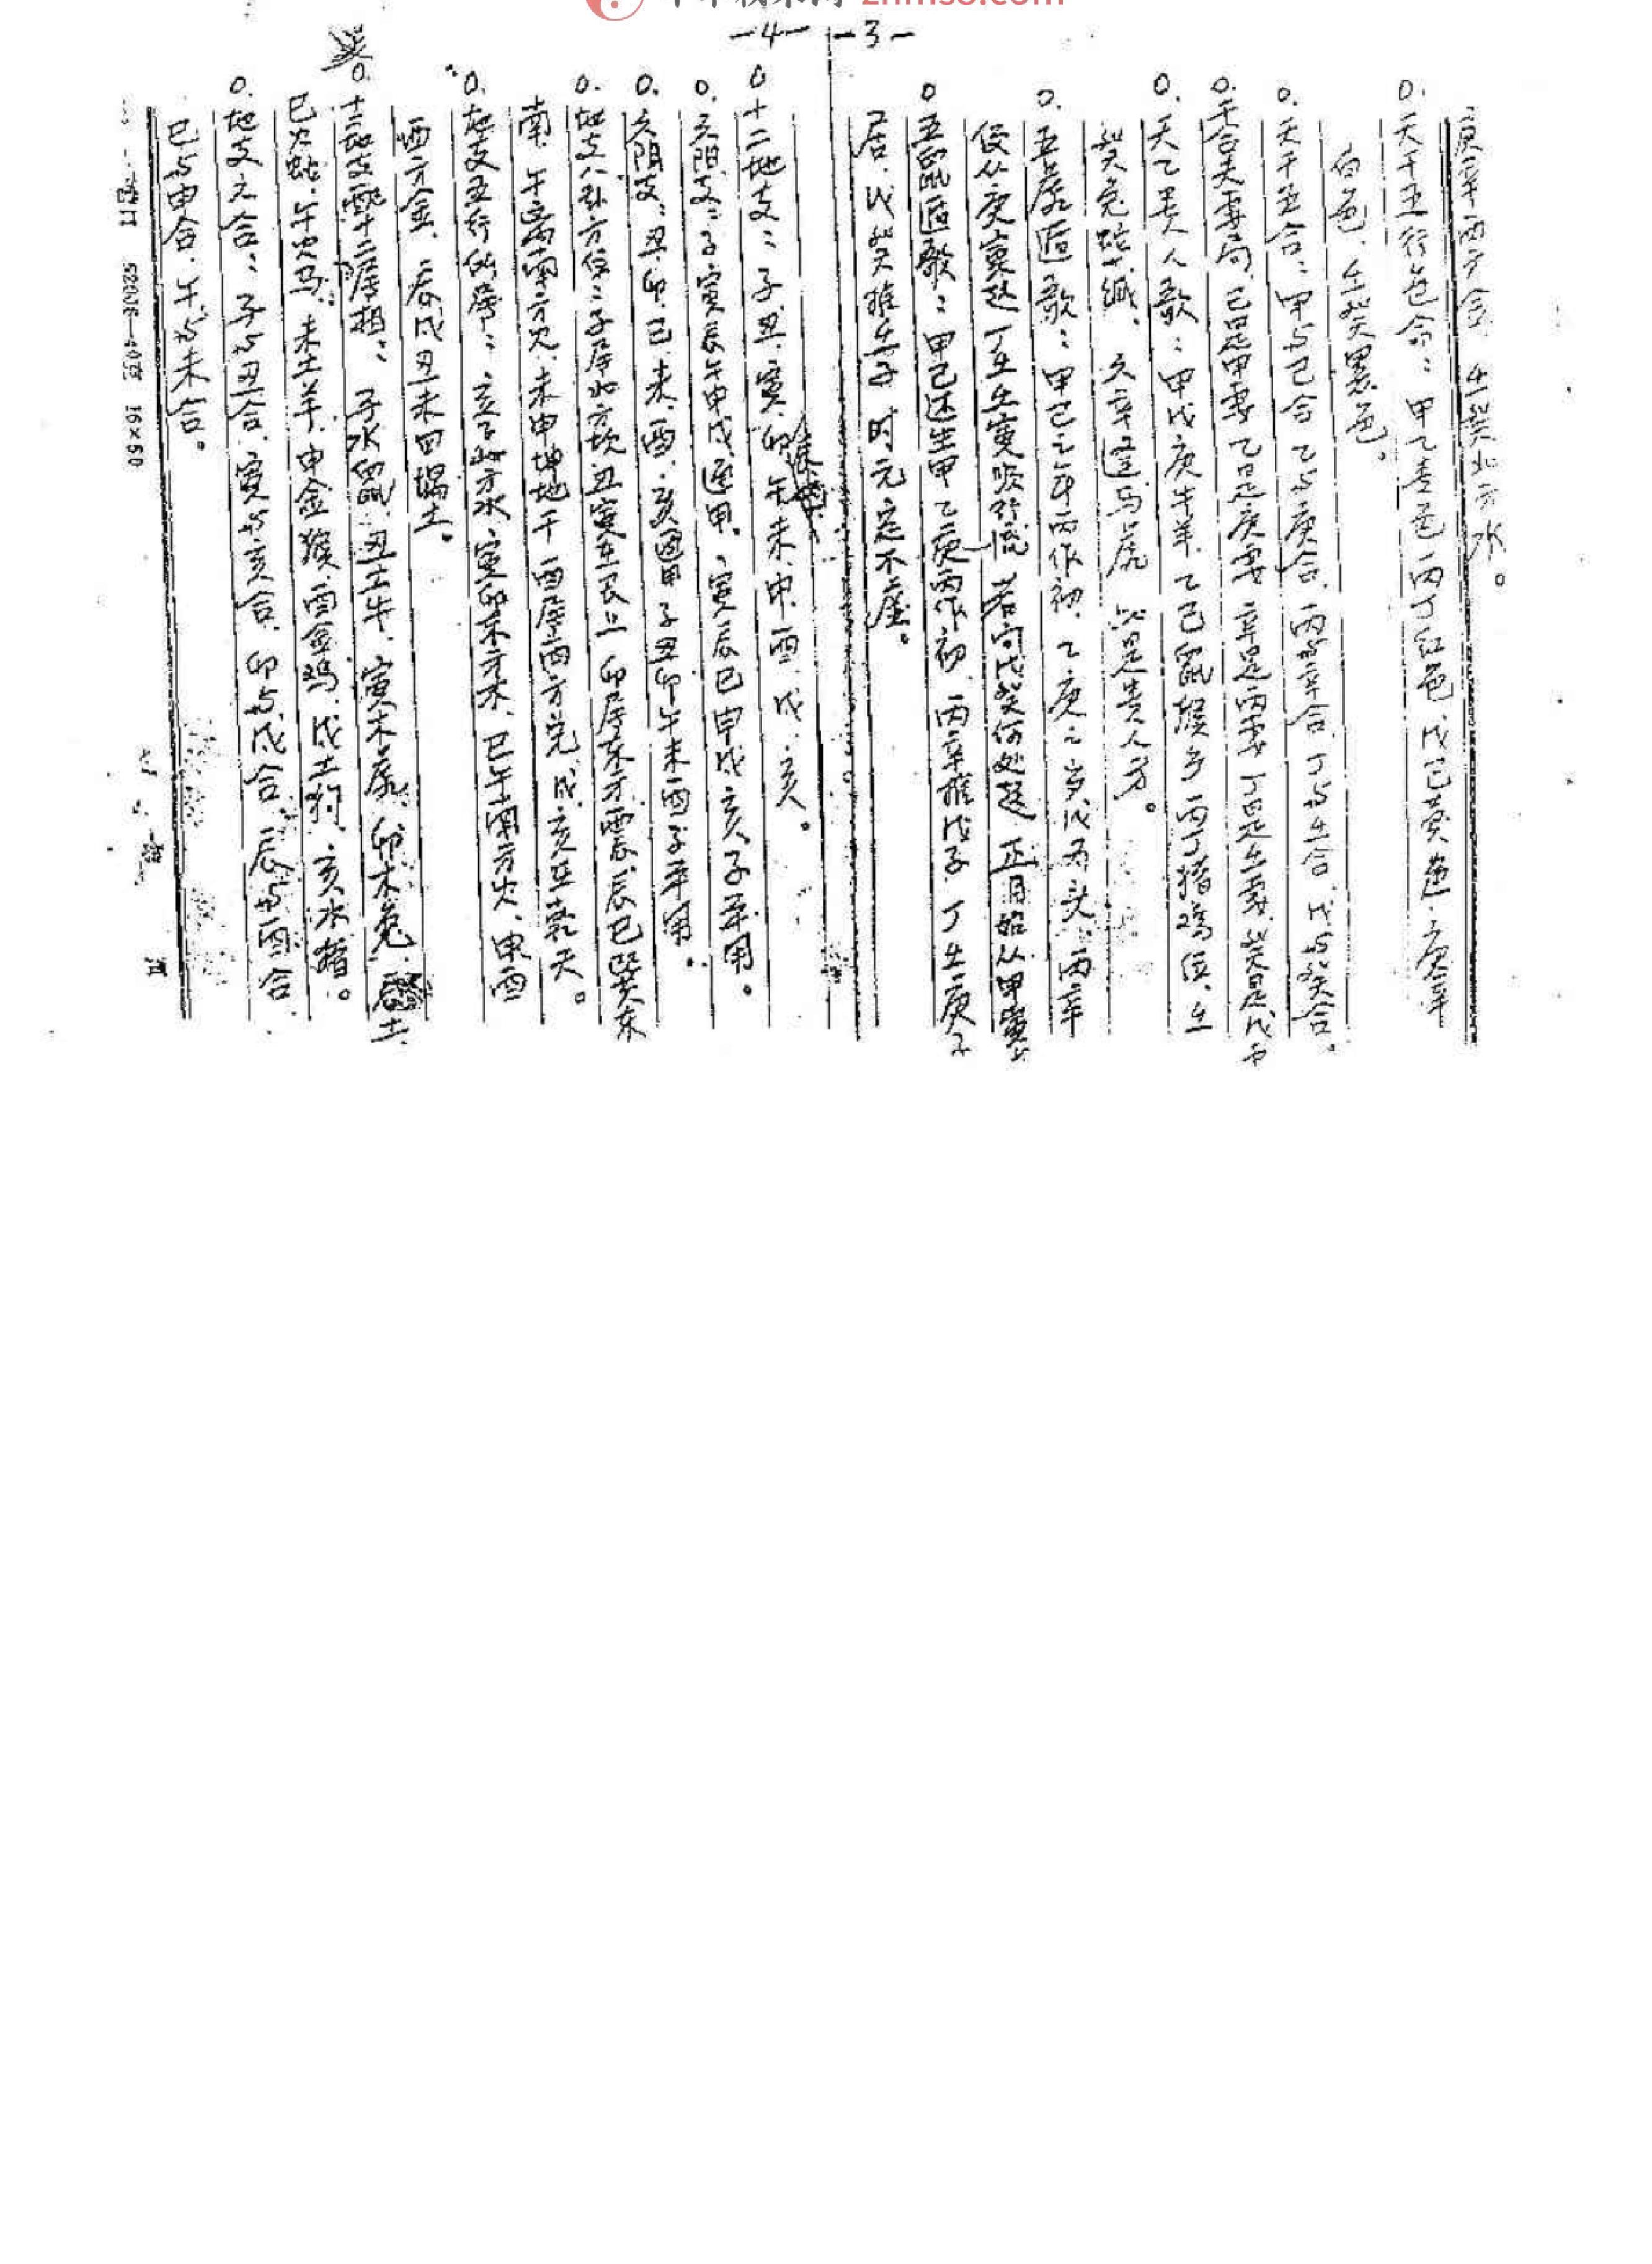 znmso.com
-3-
庚辛西方金 壬癸北方水。
○.天干五行色合：甲乙青色 丙丁红色 戊己黄色.庚辛
白色.壬癸黑色。
○.天干五合：甲与己合 乙与庚合.丙与辛合 丁与壬合.戊与癸合。
○.干合夫妻局.己是甲妻 乙是庚妻 辛是丙妻 丁是壬妻.癸是戊
○.天乙贵人歌：甲戊庚牛羊.乙己鼠猴乡 丙丁猪鸡位.壬
癸兔蛇藏.六辛逢马虎 此是贵人方。
○.五虎遁歌：甲己之年丙作初.乙庚之岁戊为头.丙辛
便从庚寅起 丁壬壬寅顺行流 若问戊癸何处起 正月始从甲寅
○五鼠遁歌：甲己还生甲 乙庚丙作初.丙辛推戊子.丁壬庚子
居.戊癸推壬子 时元定不虚。
-4-
○十二地支：子.丑.寅.卯.辰.巳.午.未.申.酉.戌.亥。
○.六阳支：子.寅辰午申戌通用.寅辰巳申戌亥子并用。
○.六阴支：丑.卯.巳.未.酉.亥通用 子丑卯午未酉子并用.
○.地支八卦方位：子居北方坎 丑寅在艮上 卯居东方震.辰巳巽东
南.午离南方火.未申坤地干 酉居西方兑.戌亥在乾天。
○.地支五行所居：亥子北方水.寅卯东方木.巳午南方火.申酉
西方金.辰戌丑未四塌土。
○.十二地支配十二属相：子水鼠.丑土牛.寅木虎.卯木兔.辰土
巳火蛇.午火马.未土羊.申金猴.酉金鸡.戌土狗.亥水猪。
○.地支六合：子与丑合.寅与亥合.卯与戌合.辰与酉合
巳与申合.午与未合。
16×50